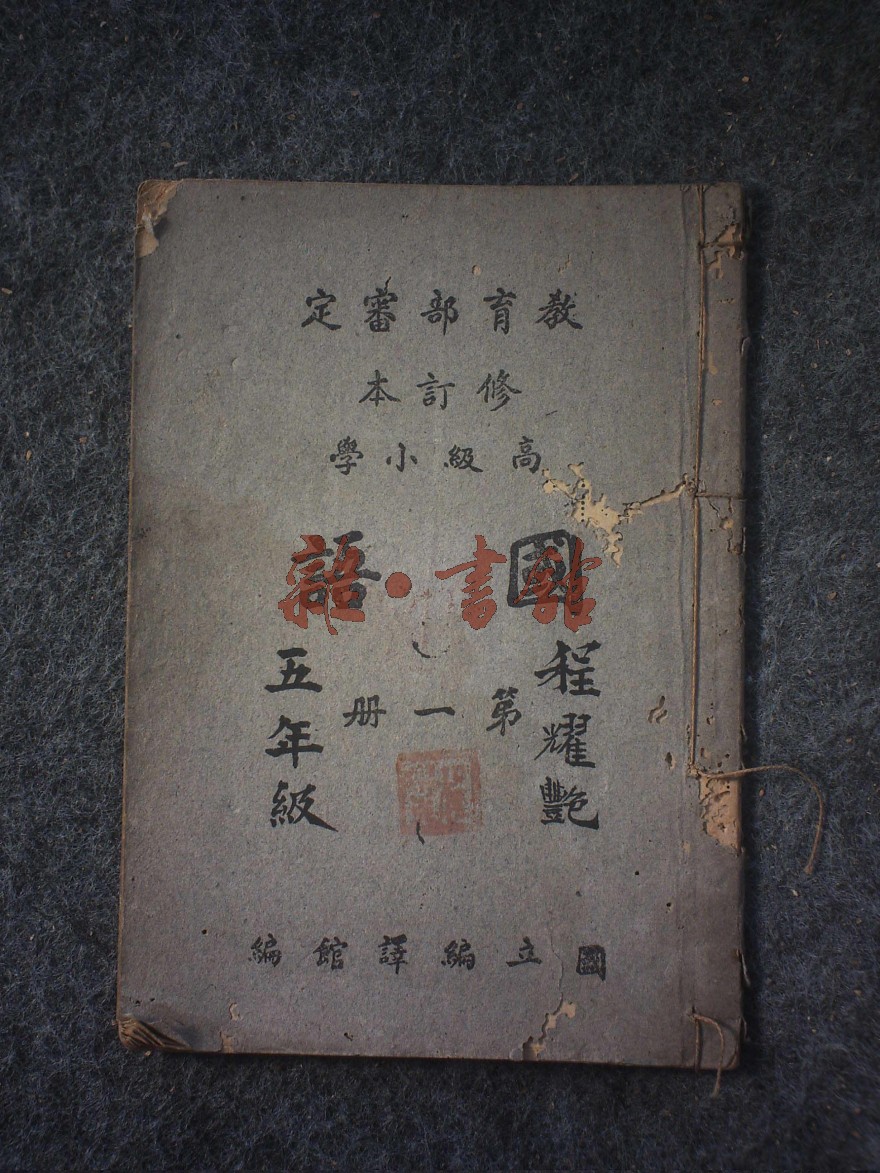 教育部審定
修訂本
高級小學
國語
第一册
程耀艷
五年級
國立編譯館編
書館